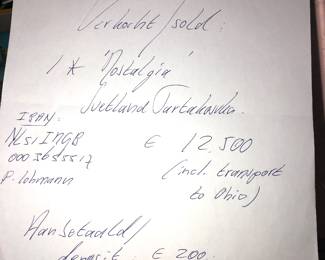 Verkocht/sold:
1 * 'Nostalgia'
Svetlana Tartakovska.
IBAN:
NL51INGB
P. Lohmann
€ 12.500
(incl. transport
to Ohio)
Aanbetaald/
deposit: € 200.